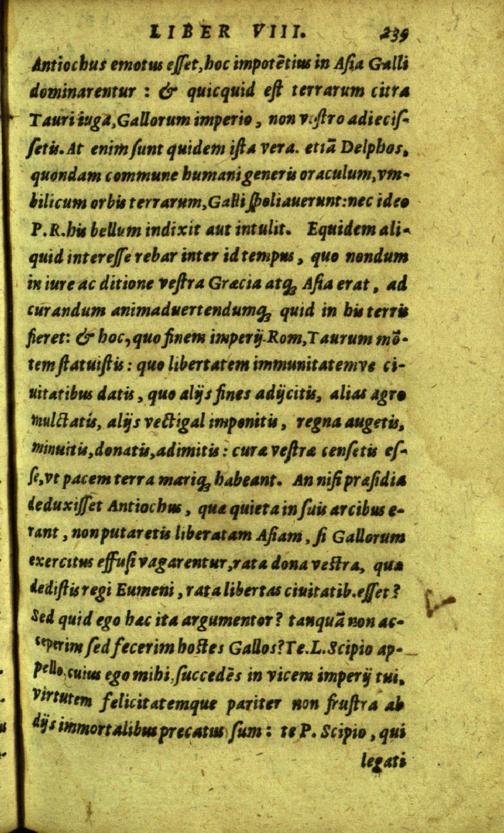 LIBER VIII. 239
Antiochus emotus esset, hoc impotētius in Asia Galli
dominarentur : & quicquid est terrarum citra
Tauri iuga, Gallorum imperio, non vestro adiecis-
setis. At enim sunt quidem ista vera. etiā Delphos,
quondam commune humani generis oraculum, vm-
bilicum orbis terrarum, Galli spoliauerunt: nec ideo
P.R. his bellum indixit aut intulit. Equidem ali-
quid interesse rebar inter id tempus, quo nondum
in iure ac ditione vestra Græcia atq; Asia erat, ad
curandum animaduertendumq; quid in his terris
fieret: & hoc, quo finem imperij Rom, Taurum mō-
tem statuistis : quo libertatem immunitatemve ci-
uitatibus datis, quo alijs fines adijcitis, alias agro
mulctatis, alijs vectigal imponitis, regna augetis,
minuitis, donatis, adimitis : curæ vestræ censetis es-
se, vt pacem terra mariq; habeant. An nisi præsidia
deduxisset Antiochus, quæ quieta in suis arcibus e-
rant, non putaretis liberatam Asiam, si Gallorum
exercitus effusi vagarentur, rata dona vestra, quæ
dedistis regi Eumeni, rata libertas ciuitatib. esset?
Sed quid ego hæc ita argumentor? tanquā non ac-
ceperim sed fecerim hostes Gallos? Te. L. Scipio ap-
pello, cuius ego mihi, succedēs in vicem imperij tui,
virtutem felicitatemque pariter non frustra ab
dijs immortalibus precatus sum : te P. Scipio, qui
legati